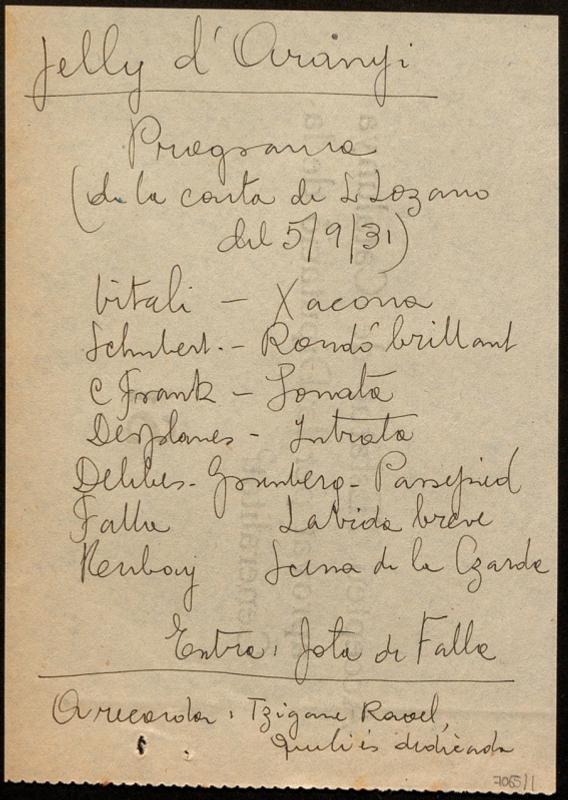 Jelly d'Aranyi
Programa
(de la carta de L Lozano
del 5/9/31)
Vitali - Xacona
Schubert. - Rondó brillant
C Frank - Sonata
Desplanes - Intrata
Delibes - Grunberg - Passepied
Falla La vida breve
Hubay Scena de la Czarda
Extra: Jota de Falla
A recordar: Tzigane Ravel,
que li és dedicada
7065/1